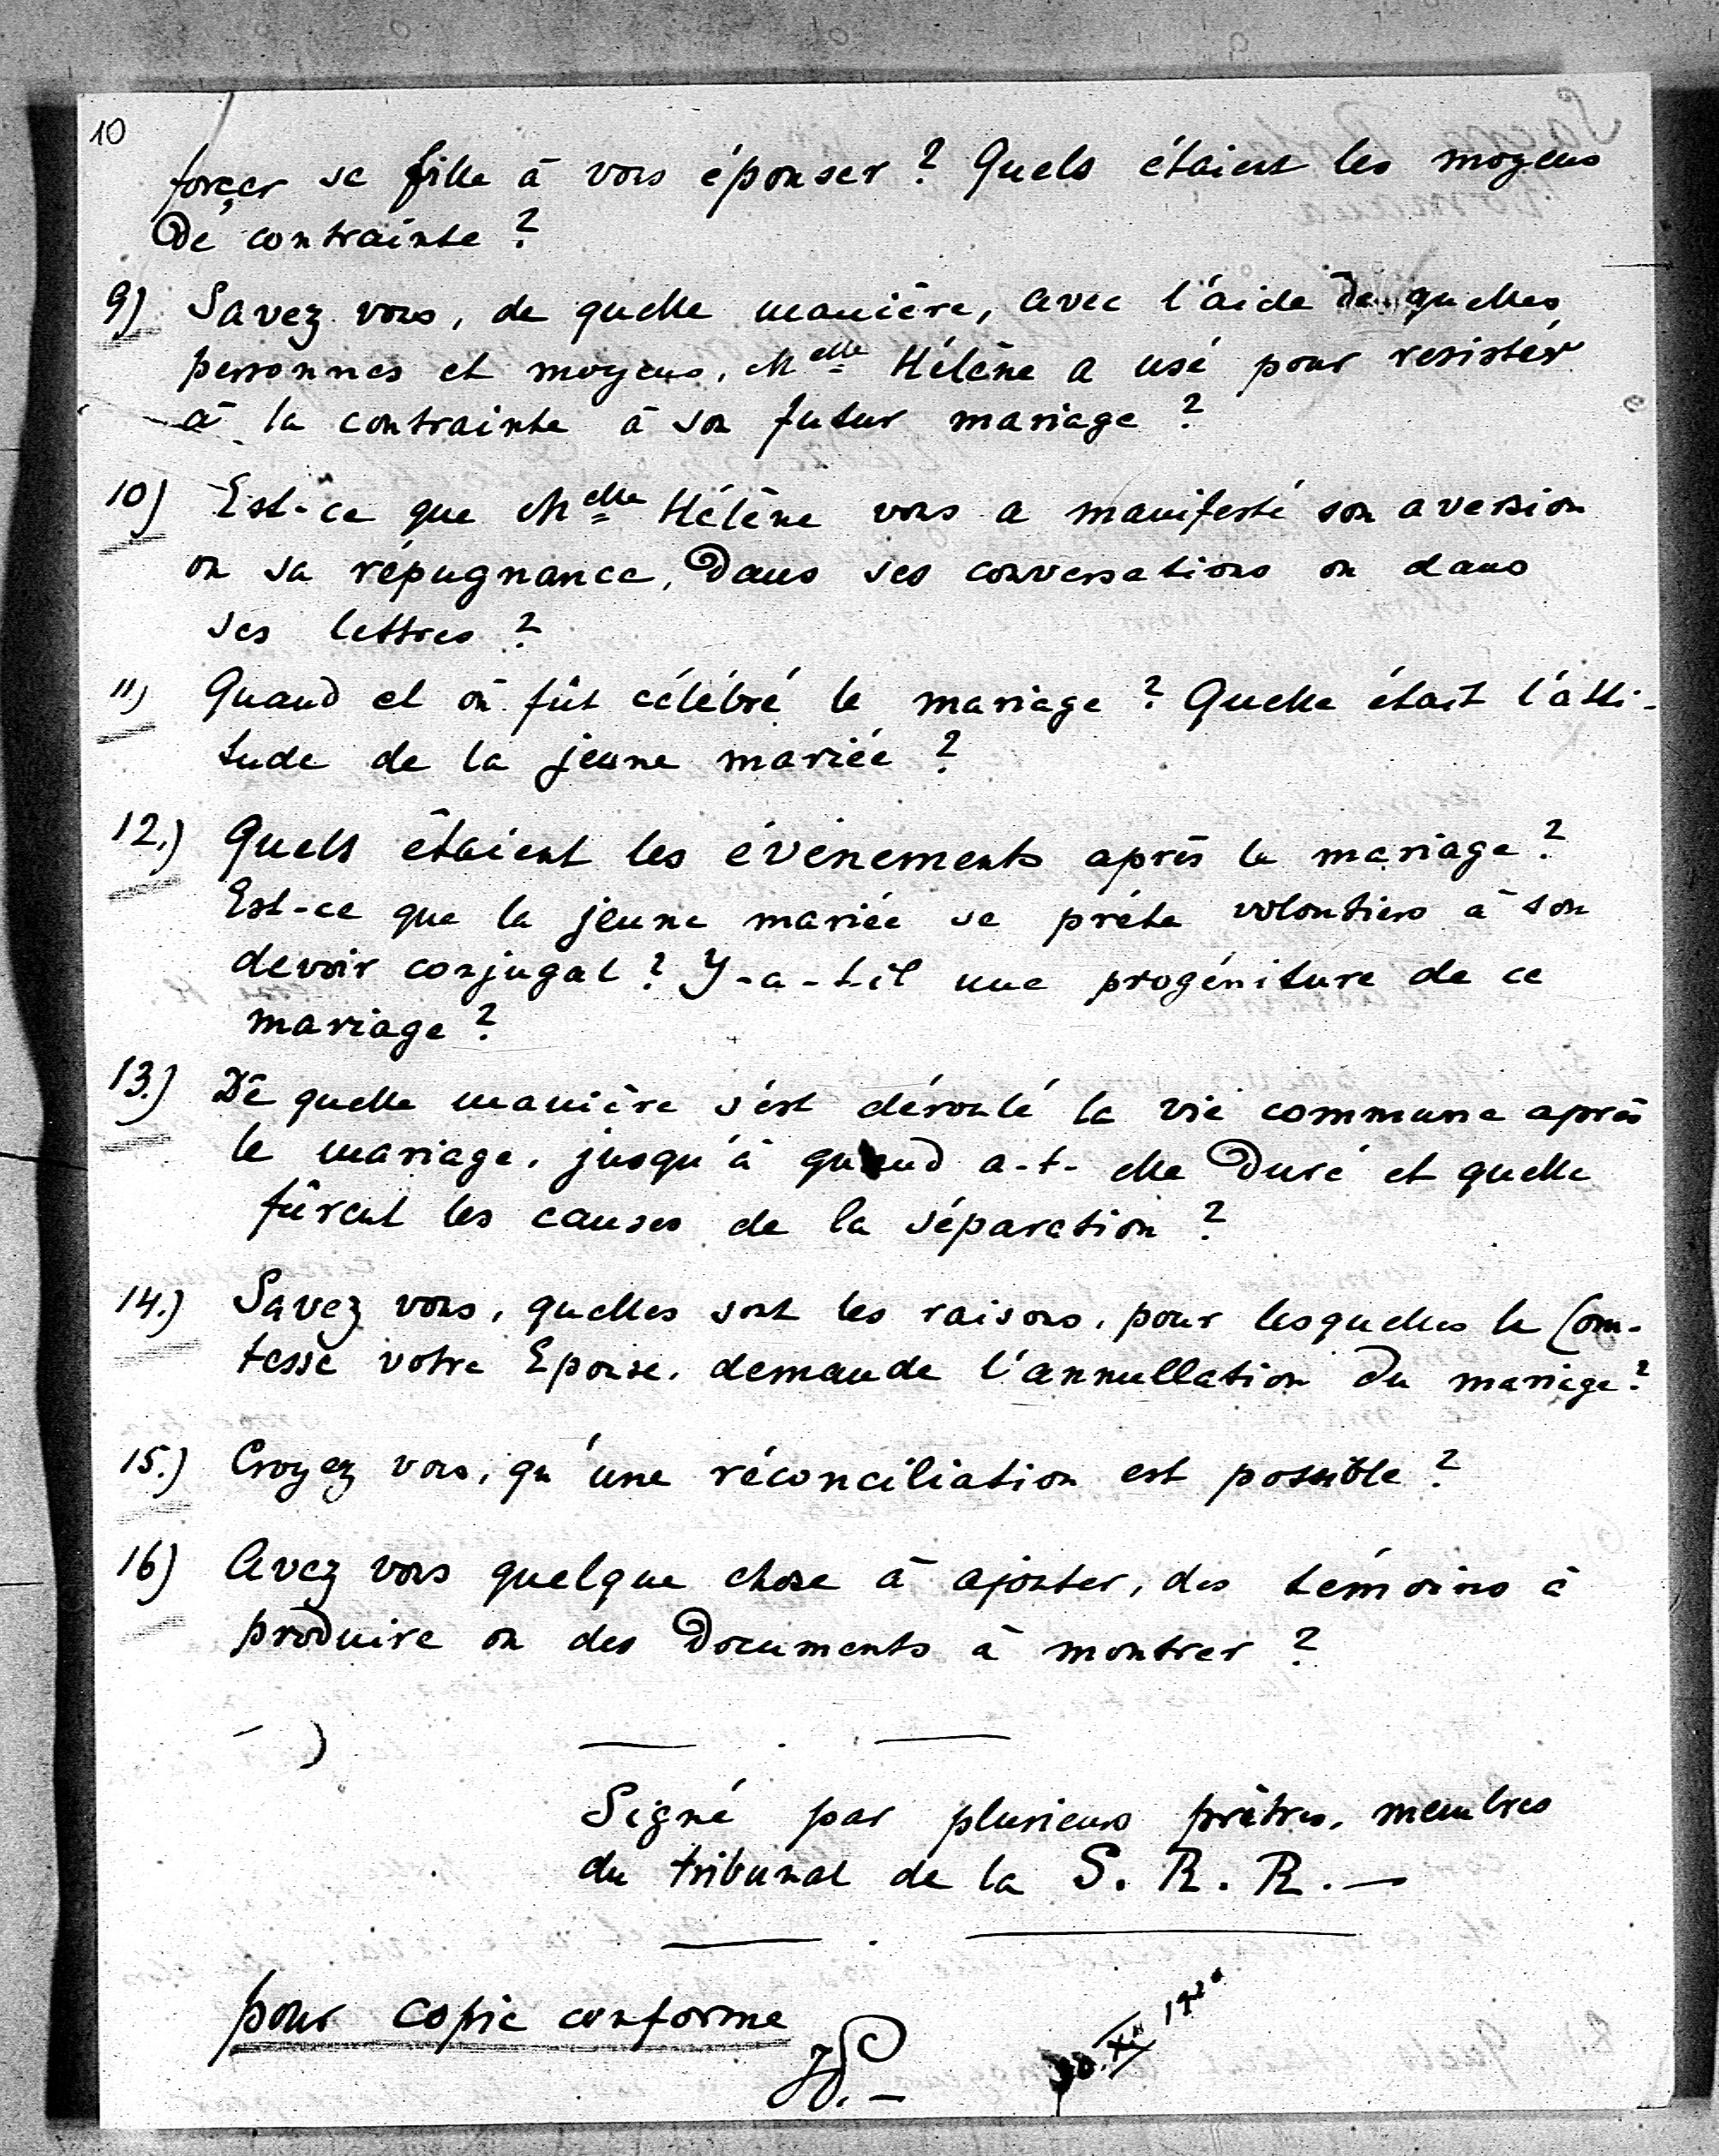 10
forçer sa fille à vous épouser ? Quels étaient les moyens
De contrainte ?
9) Savez vous, de quelle manière, avec l'aide de quelles
personnes et moyens, Melle Hélène a usé pour resister
à la contrainte à son futur mariage ?
10) Est-ce que Melle Hélène vous a manifesté son aversion
ou sa répugnance, Dans ses conversations ou dans
ses lettres ?
11) Quand et où fût célébré le mariage ? Quelle était l'atti-
tude de la jeune mariée ?
12.) Quels étaient les événements après le mariage ?
Est-ce que la jeune mariée se prête volontiers à son
devoir conjugal ? Y-a-t-il une progéniture de ce
mariage ?
13.) De quelle manière s'est déroulé la vie commune après
le mariage, jusqu'à quand a-t-elle Duré et quelle
fûrent les causes de la séparation ?
14.) Savez vous, quelles sont les raisons, pour lesquelles la Com-
tesse votre Epouse, demande l'annullation du mariage ?
15.) Croyez vous, qu'une réconciliation est possible ?
16) Avez vous quelque chose à ajouter, des témoins à
produire ou des Documents à montrer ?
Signé par plusieurs prêtres, membres
du tribunal de la S. R. R. —
pour copie conforme